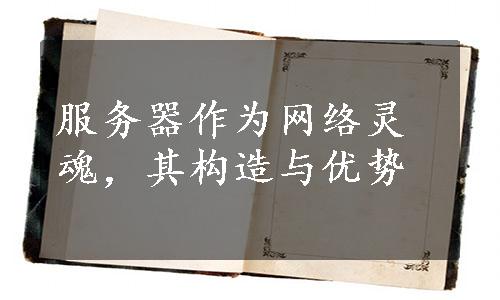 服务器作为网络灵
魂，其构造与优势